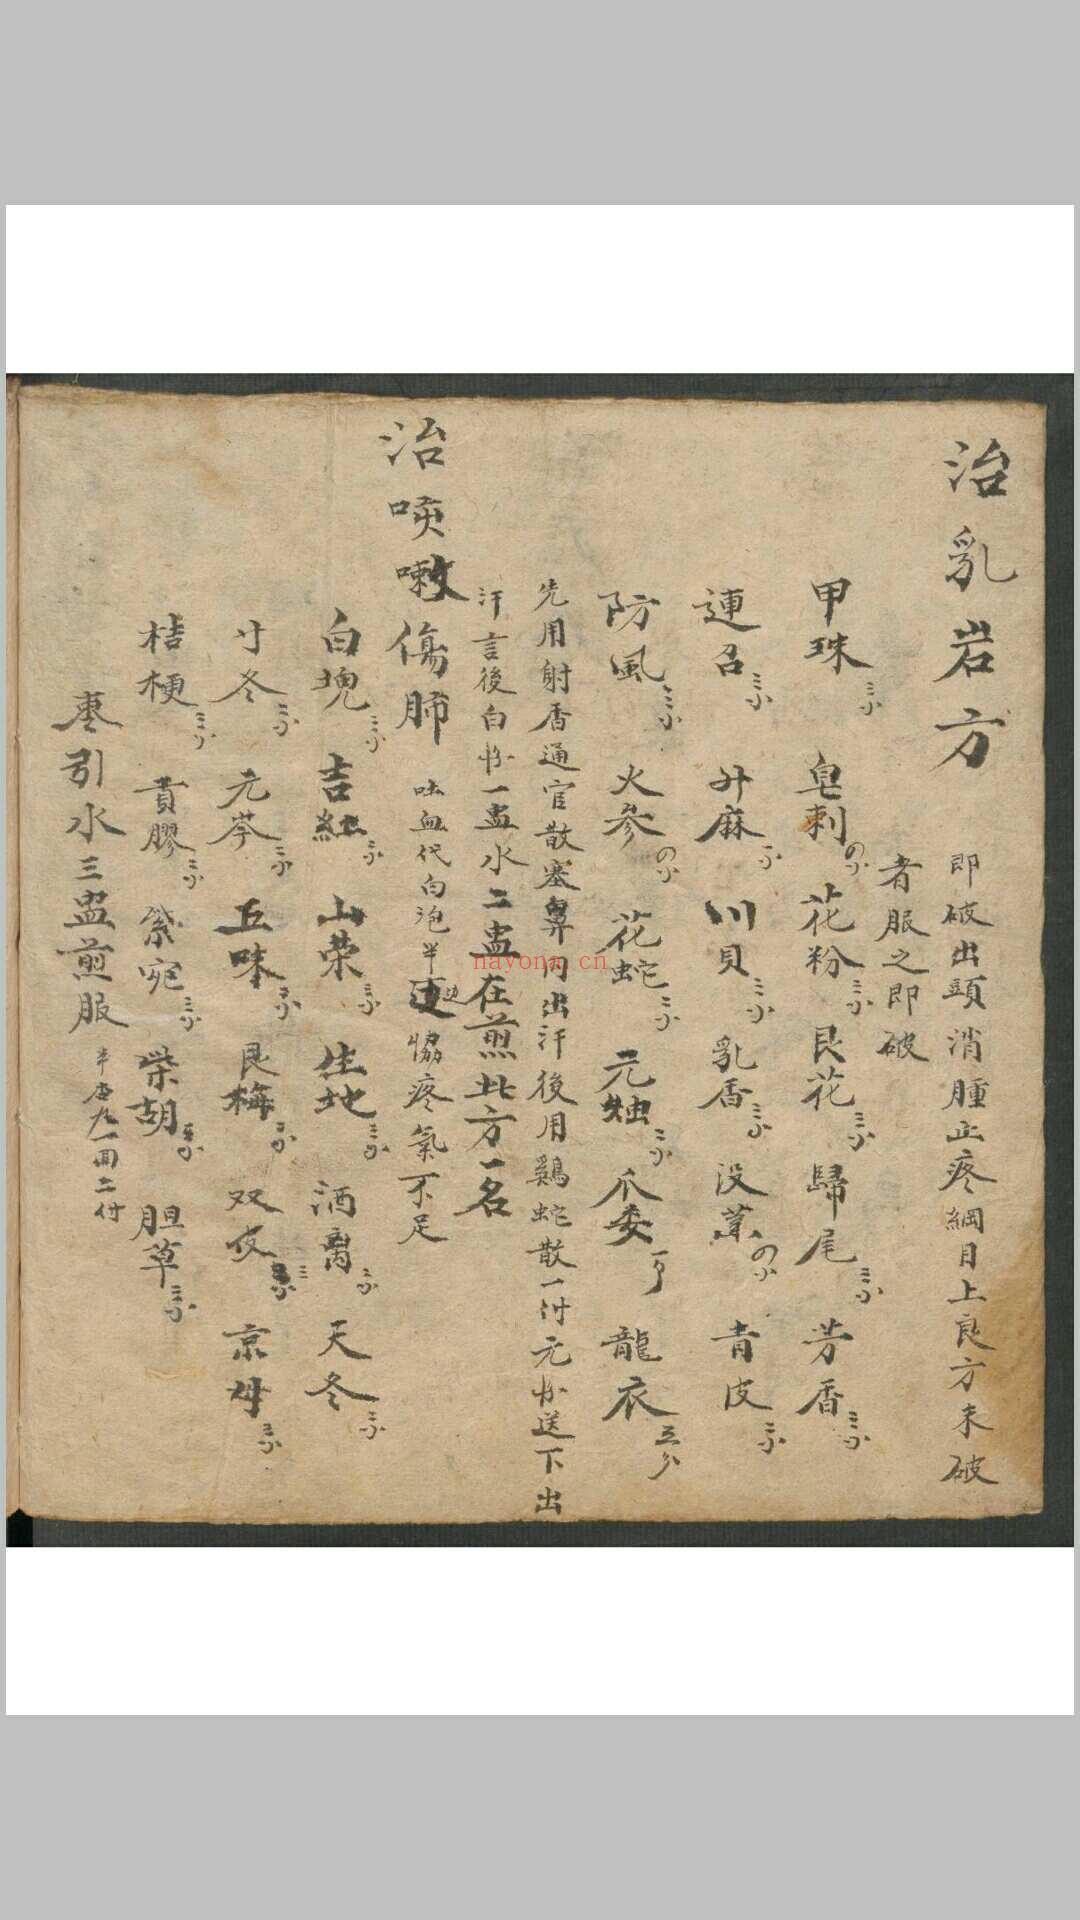 治乳岩方
即破出頭消腫止疼綱目上良方未破
者服之即破
甲珠三分 皂刺 花粉三分 艮花三分 歸尾三分 芳香三分
連召三分 升麻 川貝三分 乳香三分 没藥 青皮
防風三分 火参 花蛇三分 元虫三分 爪委 龍衣五分
先用射香通官散塞鼻内出汗後用鷄蛇散一付元 送下出
汗言後白 一盅水二盅在煎此方一名
治咳嗽傷肺
吐血代白泡半边脇疼氣不足
白塊三分 吉紅三分 山荣三分 生地三分 酒离三分 天冬三分
寸冬三分 元芩三分 五味 艮梅 双夜 京母三分
桔梗三分 貢膠三分 紫宛三分 柴胡 胆草三分
枣引水三盅煎服
nayona.cn